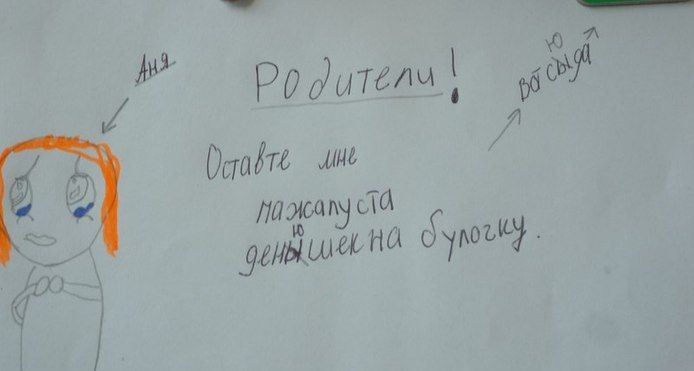 Аня
Родители!
Во сюда
Оставте мне
пажалуста
денюшек на булочку.